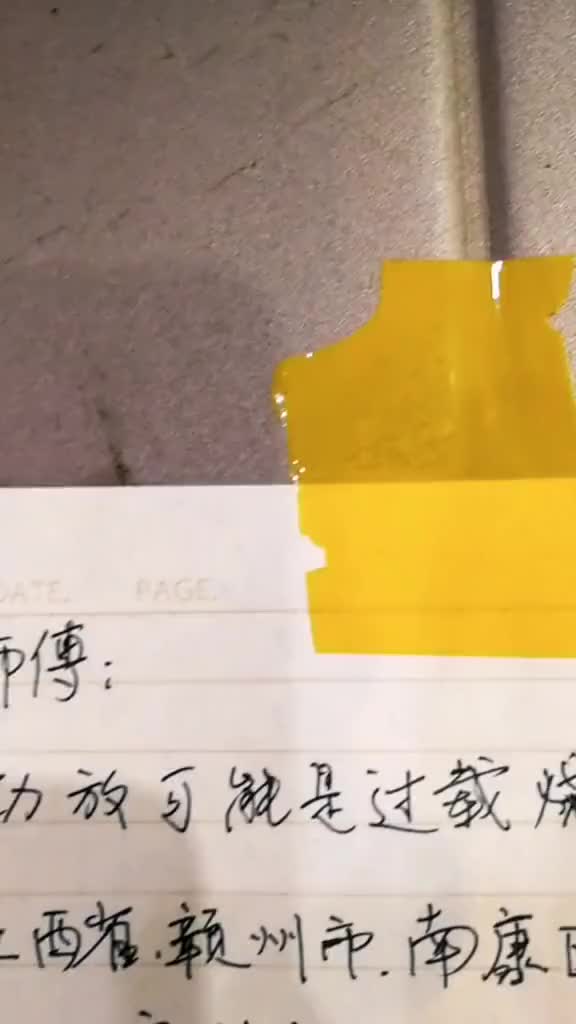 DATE. PAGE.
师傅:
功放可能是过载烧
江西省.赣州市.南康区